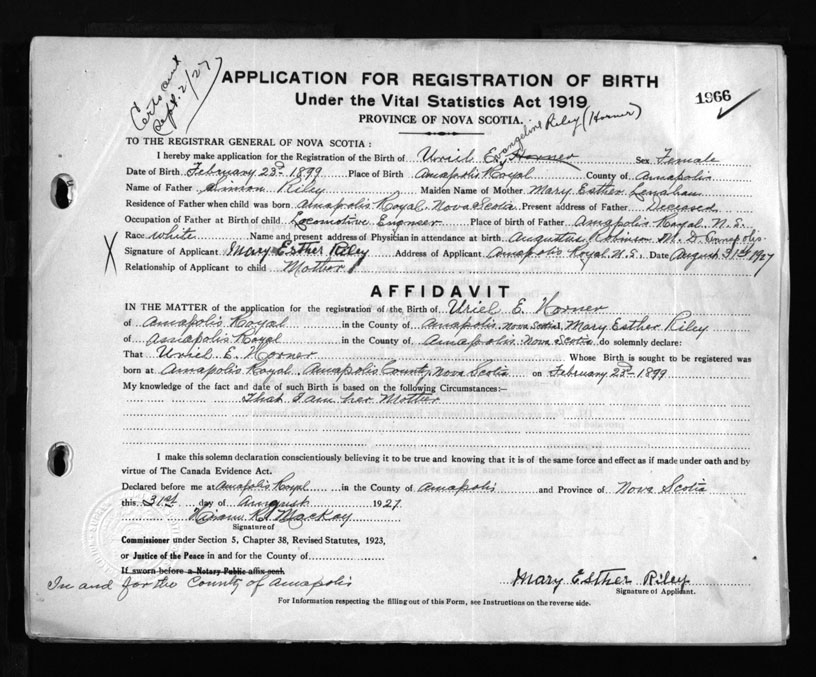 Certs sent
Sept. 2/27
APPLICATION FOR REGISTRATION OF BIRTH
Under the Vital Statistics Act 1919
PROVINCE OF NOVA SCOTIA.
1966
TO THE REGISTRAR GENERAL OF NOVA SCOTIA :
Evangeline Riley (Horner)
I hereby make application for the Registration of the Birth of Uriel E. Horner Sex Female
Date of Birth February 23rd 1899 Place of Birth Annapolis Royal County of Annapolis
Name of Father Simeon Riley Maiden Name of Mother Mary Esther Lenahan
Residence of Father when child was born Annapolis Royal Nova Scotia Present address of Father Deceased
Occupation of Father at Birth of child Locomotive Engineer Place of birth of Father Annapolis Royal N.S.
Race White Name and present address of Physician in attendance at birth Augustus Robinson M.D. Annapolis
X Signature of Applicant Mary Esther Riley Address of Applicant Annapolis Royal N.S. Date August 31st 1927
Relationship of Applicant to child Mother
AFFIDAVIT
IN THE MATTER of the application for the registration of the Birth of Uriel E. Horner
of Annapolis Royal in the County of Annapolis Nova Scotia Mary Esther Riley
of Annapolis Royal in the County of Annapolis Nova Scotia do solemnly declare:
That Uriel E. Horner Whose Birth is sought to be registered was
born at Annapolis Royal, Annapolis County, Nova Scotia on February 23rd 1899
My knowledge of the fact and date of such Birth is based on the following Circumstances:—
That I am her Mother
I make this solemn declaration conscientiously believing it to be true and knowing that it is of the same force and effect as if made under oath and by
virtue of The Canada Evidence Act.
Declared before me at Annapolis Royal in the County of Annapolis and Province of Nova Scotia
this 31st day of August 1927
K. MacKay
Signature of
Commissioner under Section 5, Chapter 38, Revised Statutes, 1923,
or Justice of the Peace in and for the County of
If sworn before a Notary Public affix seal.
In and for the County of Annapolis
Mary Esther Riley
Signature of Applicant.
For Information respecting the filling out of this Form, see Instructions on the reverse side.